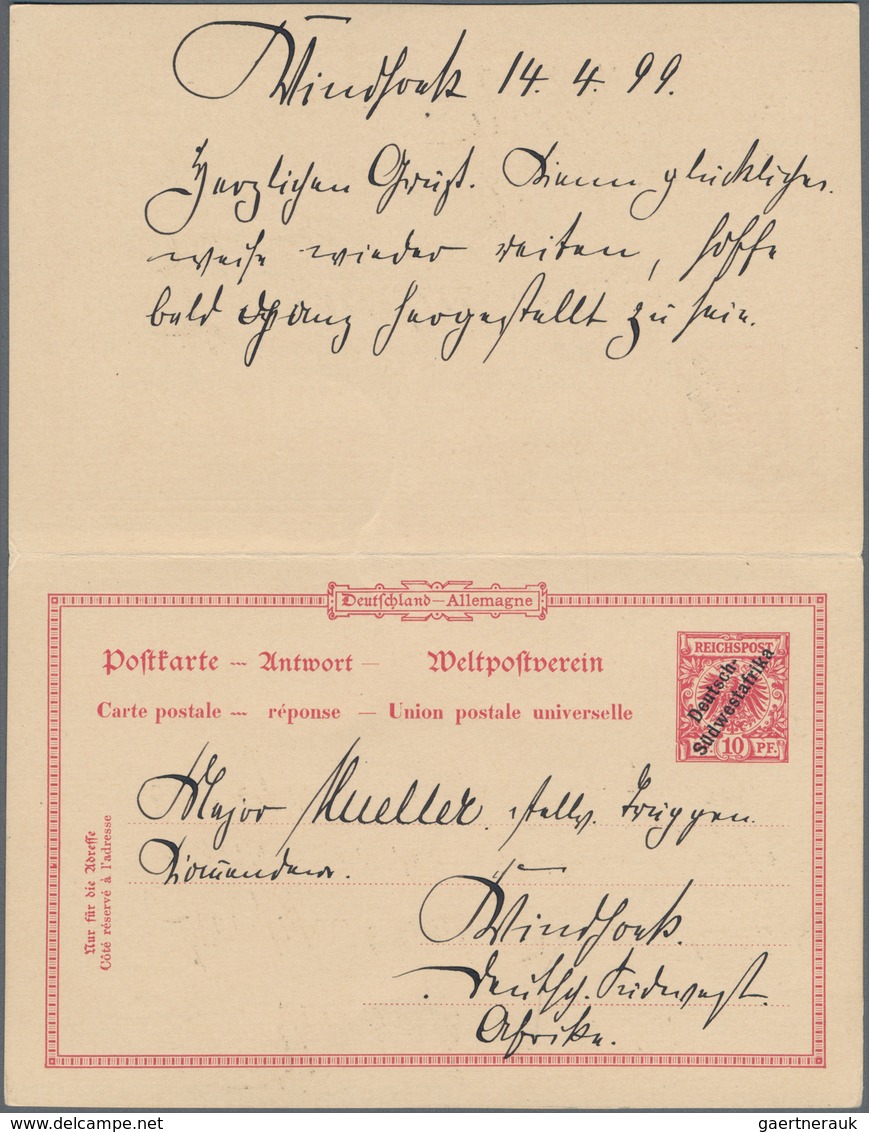 Windhoek 14. 4. 99.
Herzlichen Gruß. Kann glücklicher
weise wieder reiten, hoffe
bald ganz hergestellt zu sein.
Deutschland—Allemagne
Postkarte — Antwort — Weltpostverein
Carte postale — réponse — Union postale universelle
REICHSPOST
Deutsch-
Südwestafrika
10 PF.
Nur für die Adresse
Côté réservé à l'adresse
Major Mueller. stellv. Truppen
Kommandeur.
Windhoek.
Deutsch. Südwest
Afrika.
gaertnerauk